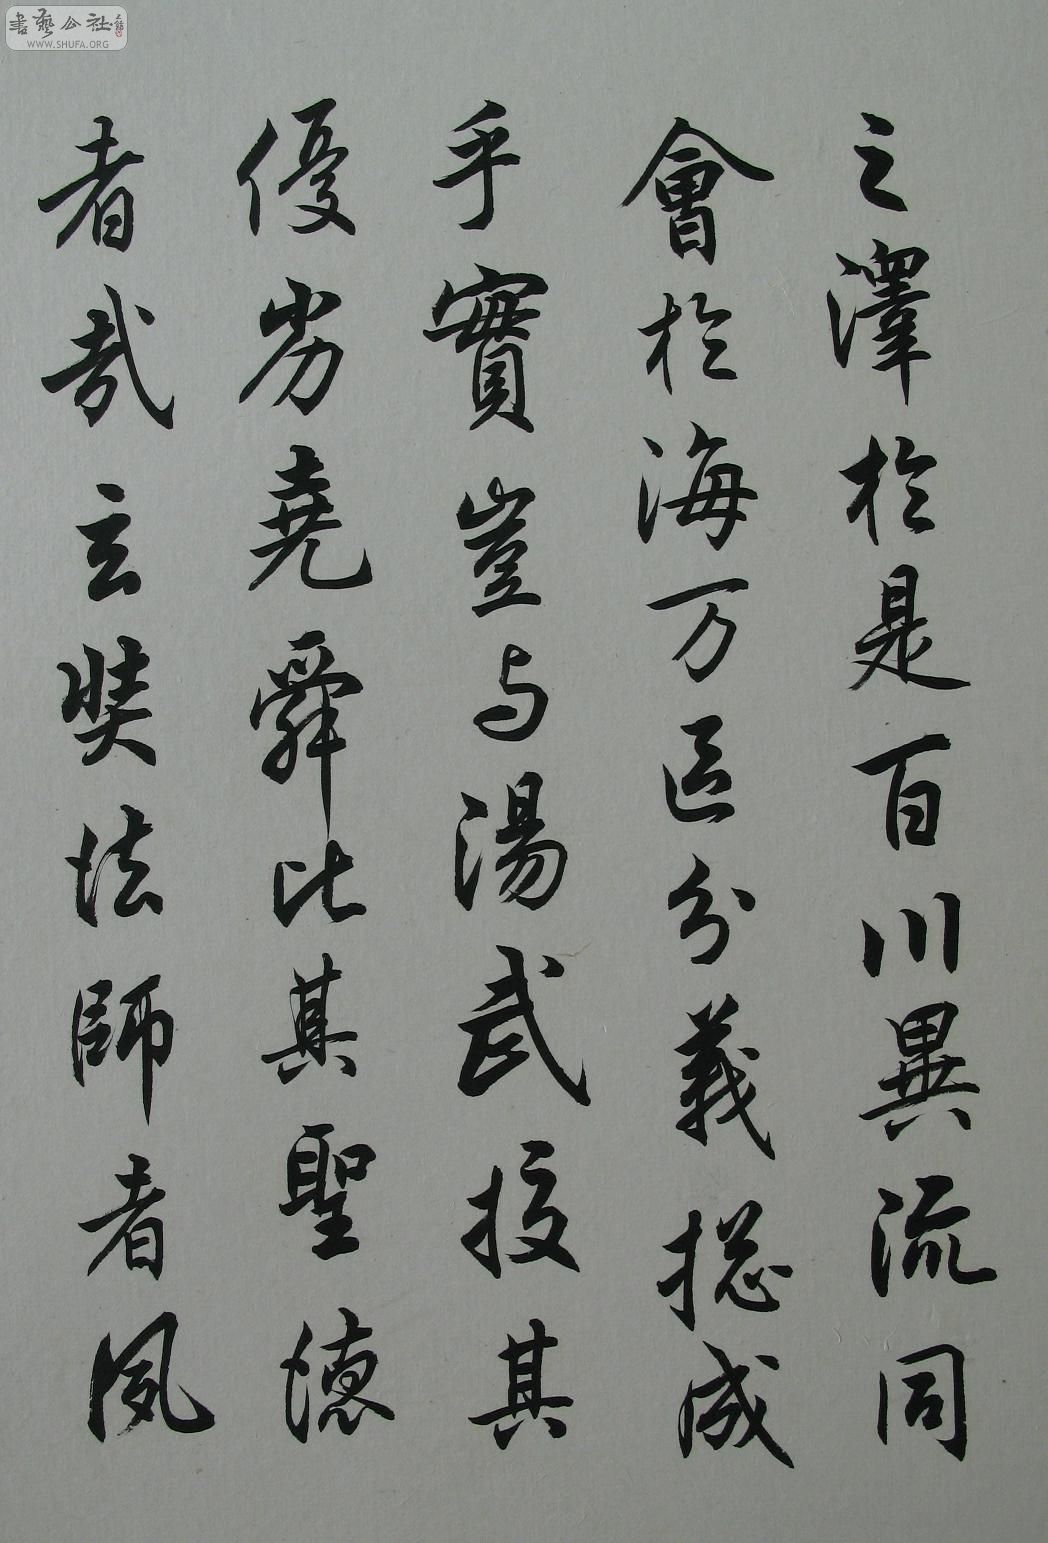 之澤於是百川異流同
會於海万區分義揔成
乎實豈与湯武挍其
優劣堯舜比其聖德
者哉玄奘法師者夙
書藝公社
WWW.SHUFA.ORG